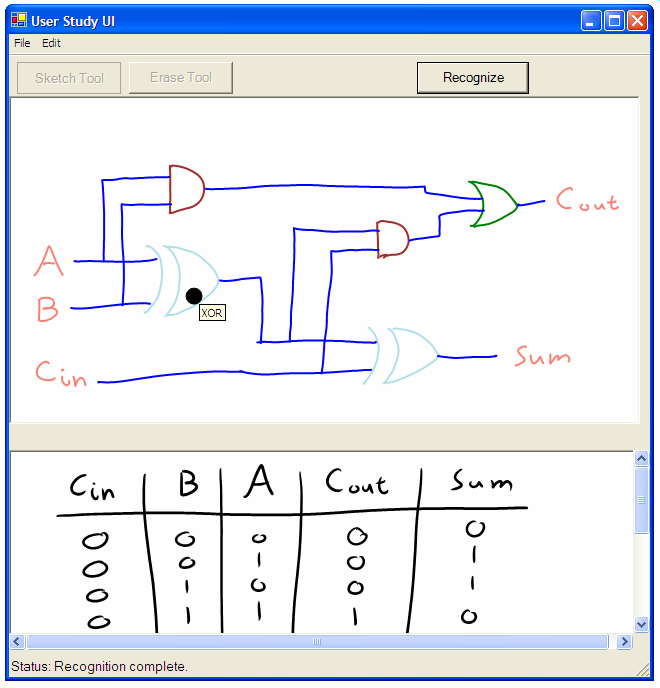 User Study UI
File Edit
Sketch Tool Erase Tool Recognize
Cout
A
XOR
B
Sum
Cin
Cin B A Cout Sum
0 0 0 0 0
0 0 1 0 1
0 1 0 0 1
0 1 1 1 0
Status: Recognition complete.